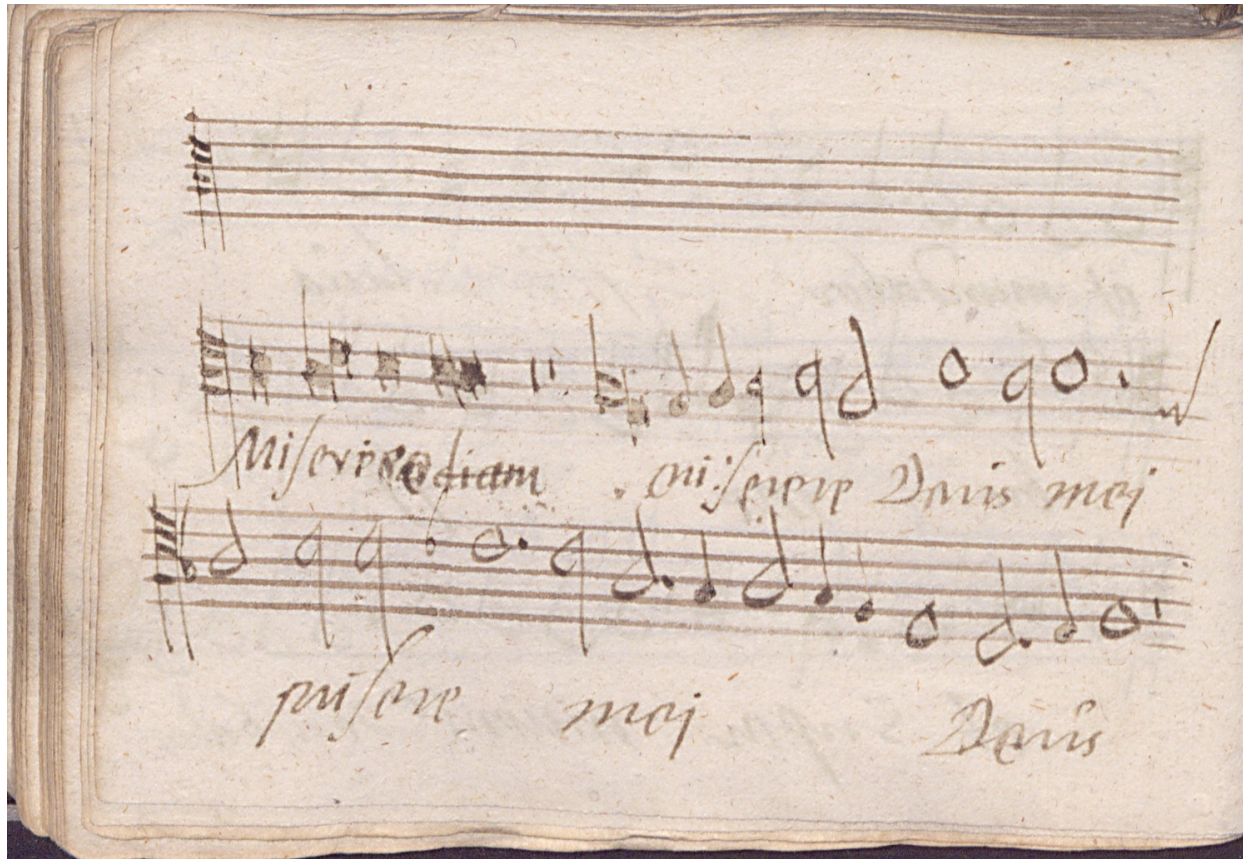 Misericordiam miserere Deus mei
miserere mei Deus